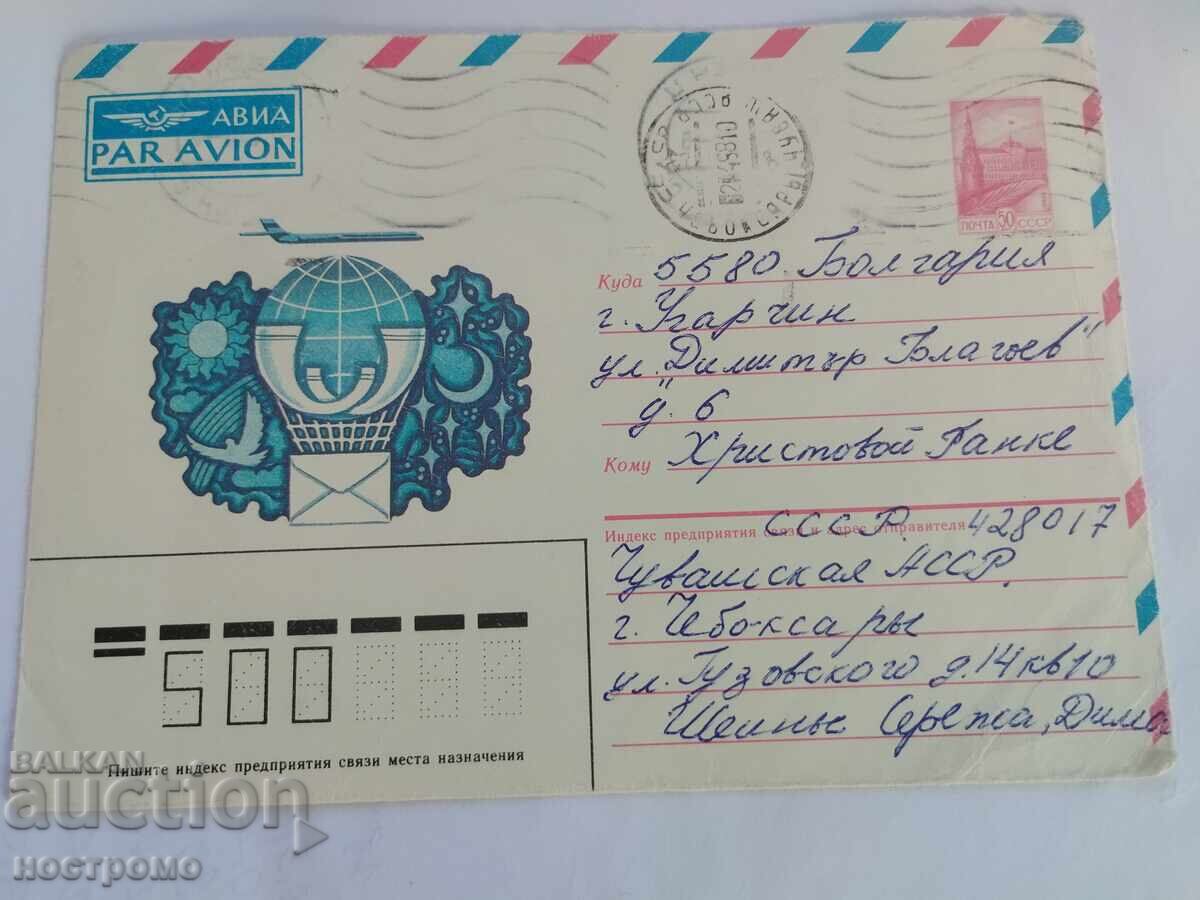 АВИА
PAR AVION
ПОЧТА 50 СССР
Куда 5580 Болгария
г. Угарчин
ул. „Димитър Благоев"
д. 6
Кому Христовой Ганке
Индекс предприятия связи и адрес отправителя
СССР 428017
Чувашская АССР,
г. Чебоксары
ул. Гузовского д. 14 кв 10
Сережа, Дима
500
Пишите индекс предприятия связи места назначения
BALKAN
auction
ностромо